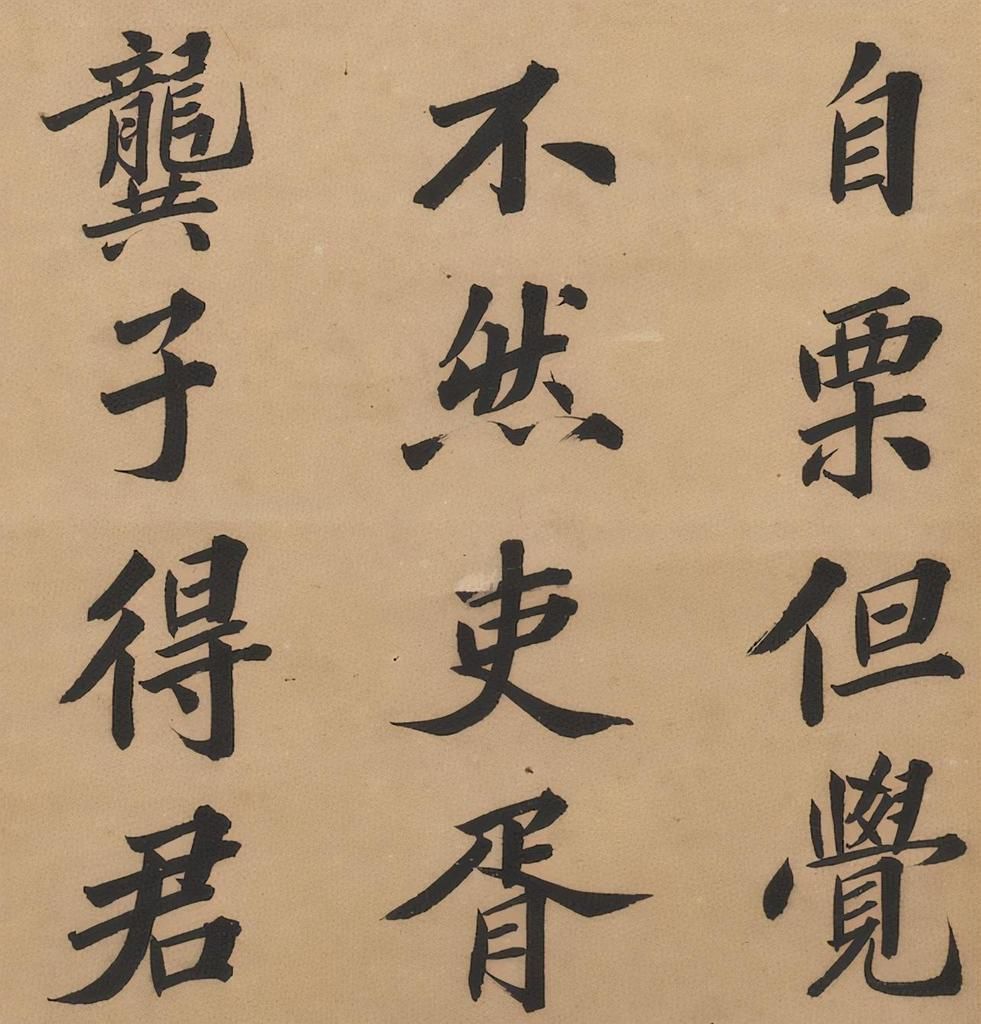 自栗但覺
不然吏胥
龔子得君